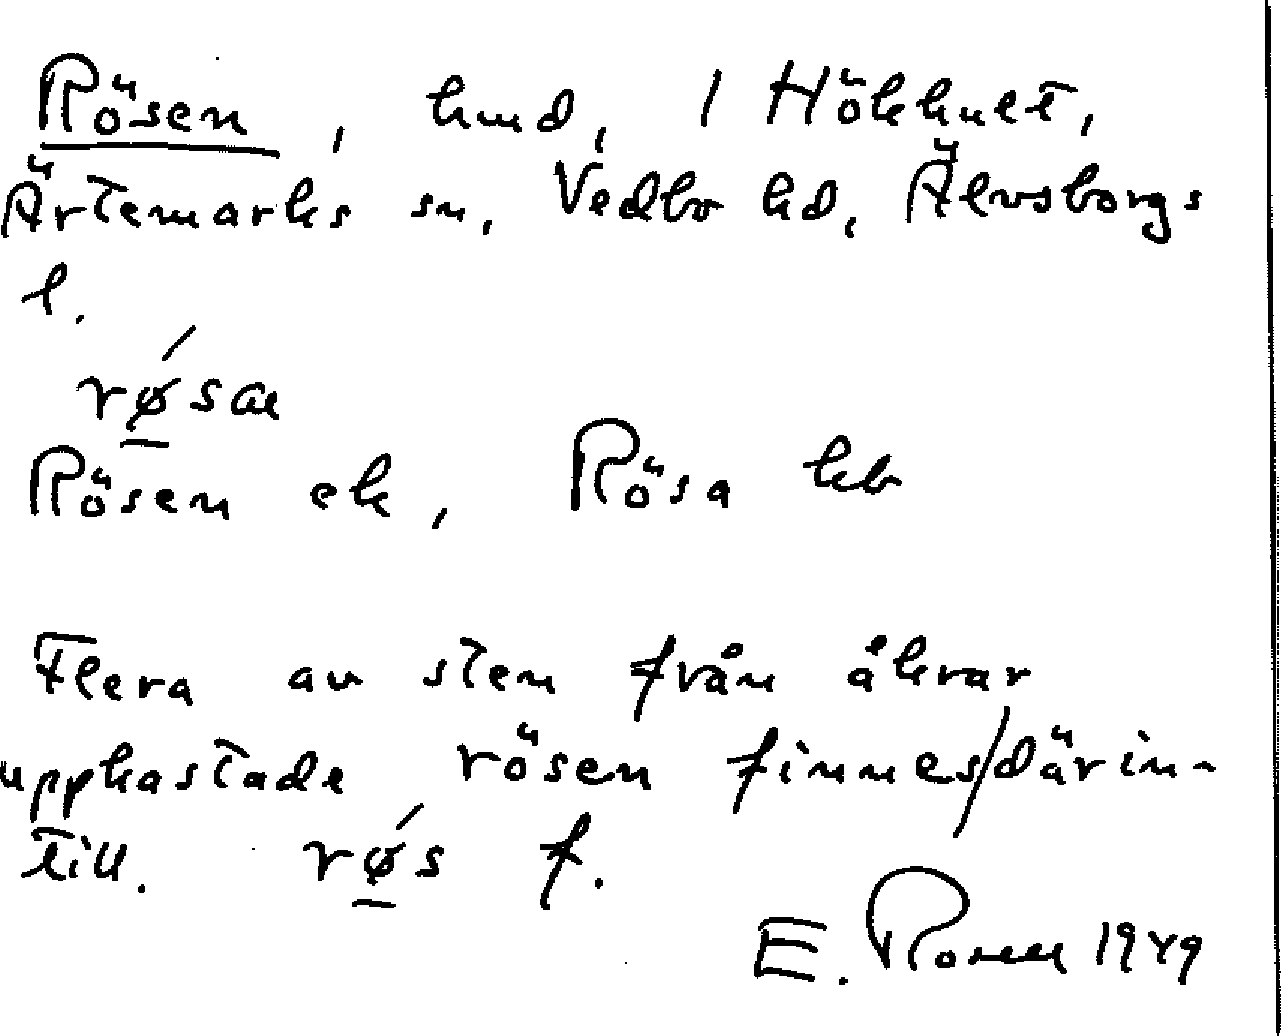 Rösen, hmd, 1 Hökhult,
Ärtemarks sn, Vedbo hd, Älvsborgs
l.
rǿ̲sæ
Rösen ek, Rösa kb
Flera av sten från åkrar
upphastade rösen finnes/därin-
till. rǿ̲s f.
E. Rosell 1949